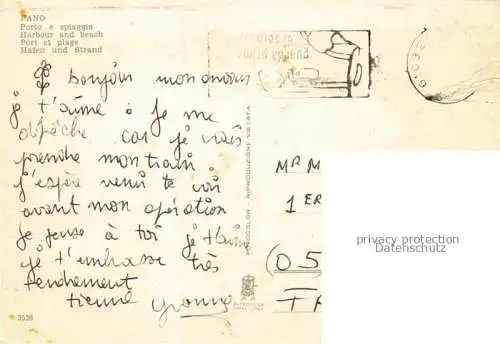 FANO
Porto e spiaggia
Harbour and beach
Port et plage
Hafen und Strand
Bonjour mon amour
je t'aime je me
dépêche car je vais
prendre mon train
j'espère venir te voir
avant mon opération
Je pense à toi je t'aime
je t'embrasse très
tendrement
tienne Yvonne
RIPRODUZIONE VIETATA
MR M
1 ER
(05
privacy protection
Datenschutz
3536